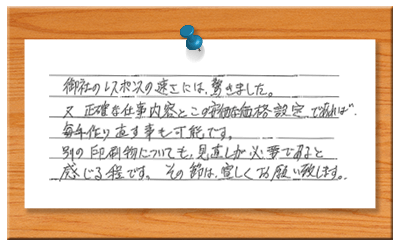 御社のレスポンスの速さには、驚きました。
又 正確な仕事内容とこの安価な価格設定であれば、
毎年作り直す事も可能です。
別の印刷物についても、見直しが必要であると
感じる程です。その節は、宜しくお願い致します。